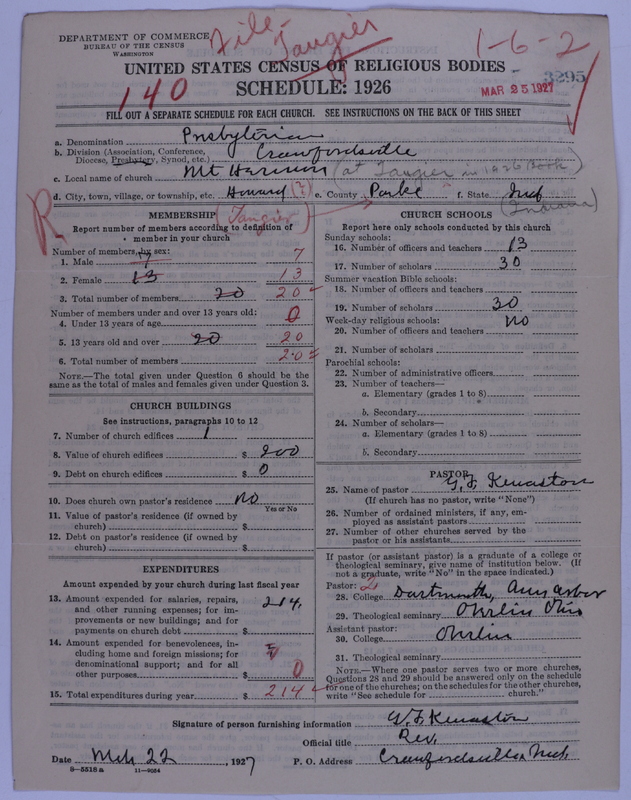 DEPARTMENT OF COMMERCE
BUREAU OF THE CENSUS
WASHINGTON
File-
Tangier
1-6-2
3295
UNITED STATES CENSUS OF RELIGIOUS BODIES
140
SCHEDULE: 1926
MAR 25 1927
FILL OUT A SEPARATE SCHEDULE FOR EACH CHURCH. SEE INSTRUCTIONS ON THE BACK OF THIS SHEET
a. Denomination Presbyterian
b. Division (Association, Conference, Diocese, Presbytery, Synod, etc.) Crawfordsville
c. Local name of church Mt Harmon (at Tangier in 1926 Book)
d. City, town, village, or township, etc. Howard (?) e. County Parke f. State Ind
(Tangier) (Indiana)
R
MEMBERSHIP
Report number of members according to definition of member in your church
Number of members, by sex:
1. Male 7 7
2. Female 13 13
3. Total number of members 20 20
Number of members under and over 13 years old:
4. Under 13 years of age 0
5. 13 years old and over 20 20
6. Total number of members 20
NOTE.—The total given under Question 6 should be the same as the total of males and females given under Question 3.
CHURCH BUILDINGS
See instructions, paragraphs 10 to 12
7. Number of church edifices 1
8. Value of church edifices $ 200
9. Debt on church edifices $ 0
10. Does church own pastor's residence No
Yes or No
11. Value of pastor's residence (if owned by church) $
12. Debt on pastor's residence (if owned by church) $
EXPENDITURES
Amount expended by your church during last fiscal year
13. Amount expended for salaries, repairs, and other running expenses; for improvements or new buildings; and for payments on church debt $ 214.
14. Amount expended for benevolences, including home and foreign missions; for denominational support; and for all other purposes $ 0
15. Total expenditures during year $ 214
CHURCH SCHOOLS
Report here only schools conducted by this church
Sunday schools:
16. Number of officers and teachers 13
17. Number of scholars 30
Summer vacation Bible schools:
18. Number of officers and teachers
19. Number of scholars 30
Week-day religious schools: No
20. Number of officers and teachers
21. Number of scholars
Parochial schools:
22. Number of administrative officers
23. Number of teachers—
a. Elementary (grades 1 to 8)
b. Secondary
24. Number of scholars—
a. Elementary (grades 1 to 8)
b. Secondary
PASTOR
25. Name of pastor G. F. Kewaston
(If church has no pastor, write "None")
26. Number of ordained ministers, if any, employed as assistant pastors
27. Number of other churches served by the pastor or his assistants
If pastor (or assistant pastor) is a graduate of a college or theological seminary, give name of institution below. (If not a graduate, write "No" in the space indicated.)
Pastor: 2
28. College Dartmouth, Ann arbor
29. Theological seminary Oberlin Ohio
Assistant pastor:
30. College Oberlin
31. Theological seminary
NOTE.—Where one pastor serves two or more churches, Questions 28 and 29 should be answered only on the schedule for one of the churches; on the schedules for the other churches, write "See schedule for church."
Signature of person furnishing information G. F. Kewaston
Official title Rev.
Date Mch 22, 1927 P. O. Address Crawfordsville Ind.
8-5518 a 11-9034